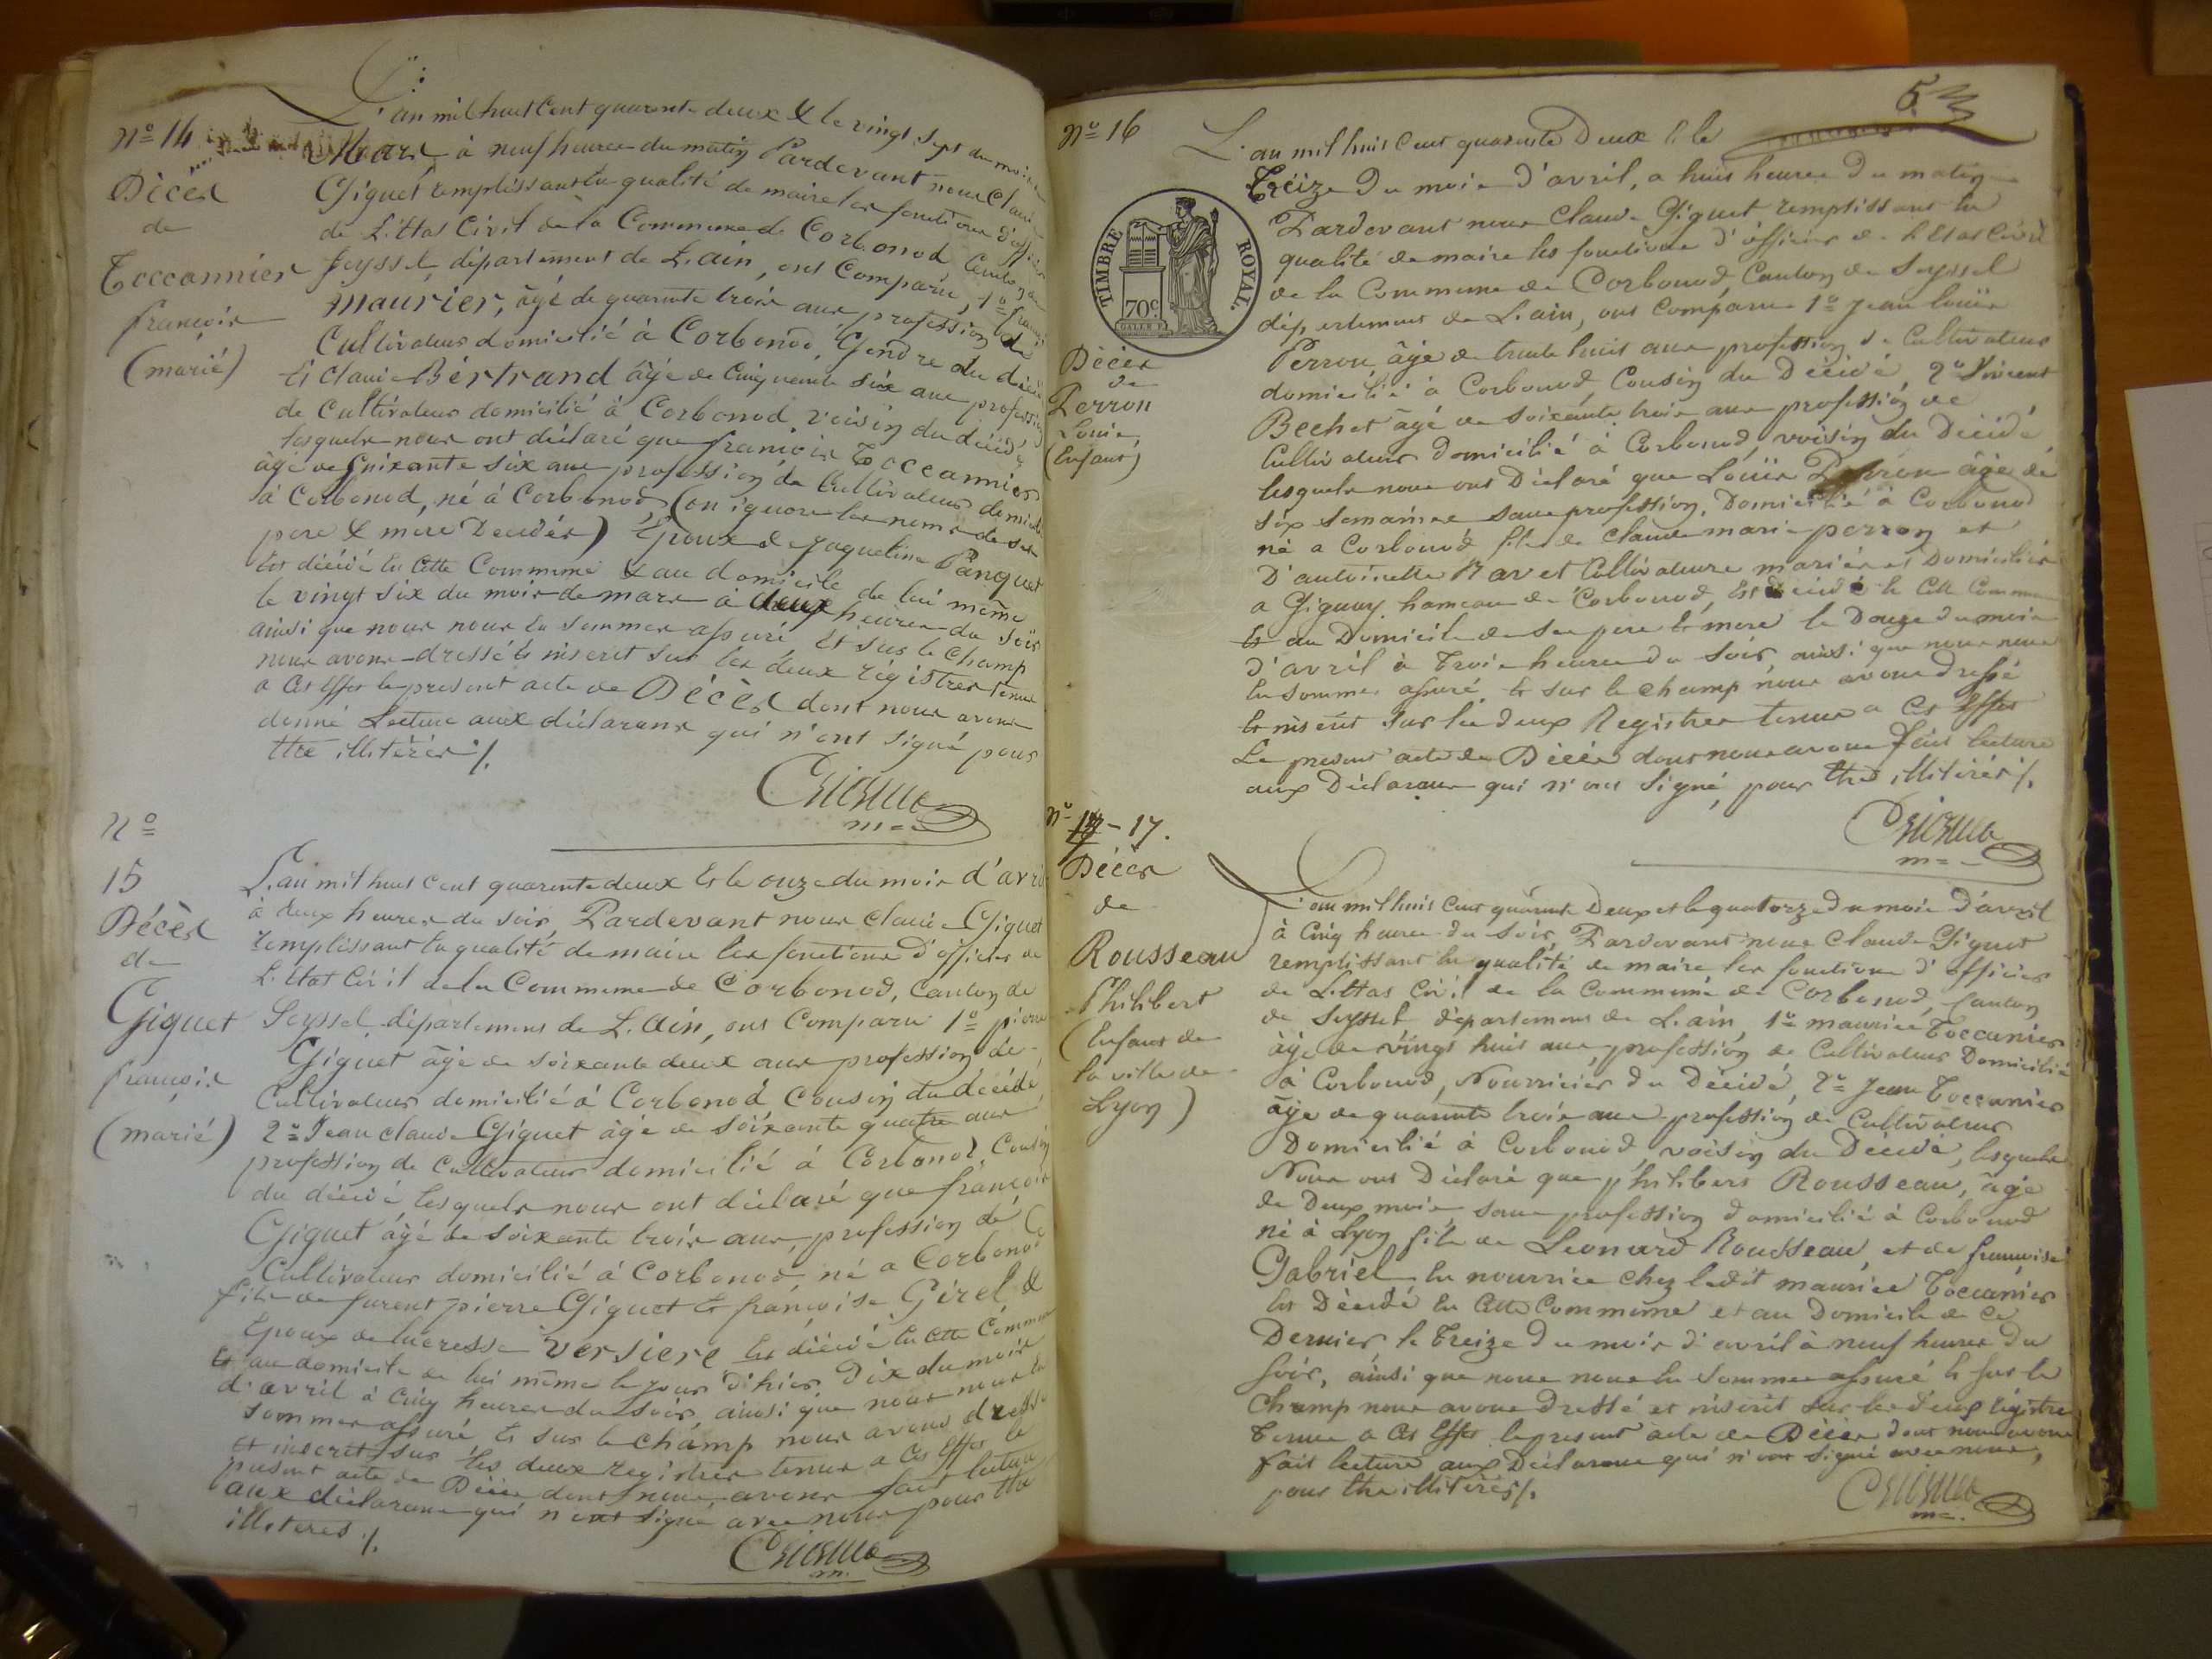 Nº 14
Décès
de
Toccannier
françois
(marié)
L'an mil huit Cent quarante deux & le vingt Sept du mois de
Mars à neuf heures du matin Pardevant nous Claude
Giguet remplissant en qualité de maire les fonctions d'officier
de L'Etat Civil de la Commune de Corbonod Canton de
Seyssel département de L'ain, ont Comparu, 1º françois
Maurier, âgé de quarante trois ans profession de
Cultivateur domicilié à Corbonod, Gendre du décédé
Et Claude Bertrand âgé de Cinquante Six ans profession
de Cultivateur domicilié à Corbonod voisin du décédé
lesquels nous ont déclaré que françois Toccannier
âgé de Soixante six ans profession de Cultivateur domicilié
à Corbonod, né à Corbonod, (on ignore les noms de ses
pere & mere Decedés) Epoux de Jaqueline Panquet
Est décédé En Cette Commune & au domicile de lui même
le vingt Six du mois de mars à deux heures du Soir
ainsi que nous nous En Sommes assuré Et sur le Champ
nous avons dressé Et inscrit Sur les deux régistres tenus
a Cet Effet le présent acte de Décès dont nous avons
donné Lecture aux déclarans qui n'ont signé pour
Etre illitérés ./.
Giguet
m=
Nº
15
Décès
de
Giguet
françois
(marié)
L'an mil huit Cent quarante deux Et le onze du mois d'avril
à deux heures du soir, Pardevant nous Claude Giguet
remplissant En qualité de maire les fonctions d'officier de
L'Etat Civil de la Commune de Corbonod, Canton de
Seyssel département de L'Ain, ont Comparu 1º pierre
Giguet âgé de soixante deux ans profession de
Cultivateur domicilié à Corbonod Cousin du décédé
2º Jean claude Giguet âgé de Soixante quatre ans
profession de Cultivateur domicilié à Corbonod, Cousin
du décédé, lesquels nous ont déclaré que françois
Giguet âgé de soixante trois ans, profession de
Cultivateur domicilié à Corbonod né a Corbonod
fils de furent pierre Giguet Et françoise Girel &
Epoux de lucresse Versiere Est décédé En Cette Commune
Et au domicile de lui même le jour d'hier Dix du mois
d'avril à Cinq heures du Soir, ainsi que nous nous En
Sommes assuré, Et sur le Champ nous avons dressé
Et inscrit Sur les deux registres tenus a Cet Effet le
présent acte de Décès dont nous avons fait lecture
aux déclarans qui n'ont signé avec nous pour Etre
illiteres ./.
Giguet
m.
5
Nº 16
TIMBRE ROYAL.
70c.
Décès
de
Perron
Louis,
(Enfant)
L'an mil huit Cent quarante Deux & le
Treize du mois d'avril, a huit heures du matin
Pardevant nous Claude Giguet remplissant En
qualité de maire les fonctions d'officier de l'Etat Civil
de la Commune de Corbonod, Canton de Seyssel
département de L'ain, ont Comparu 1º Jean louis
Perron, âgé de trente huit ans profession de Cultivateur
domicilié à Corbonod Cousin du Décédé, 2º Vincent
Bechet âgé de Soixante trois ans profession de
Cultivateur Domicilié à Corbonod, voisin du Décédé
lesquels nous ont Déclaré que Louis Perron âgé de
six Semaines sans profession, Domicilié à Corbonod
né a Corbonod fils de Claude marie perron et
D'antoinette Ravet Cultivateurs mariés et Domiciliés
a Gignay hameau de Corbonod, Est décédé En Cette Commune
Et au Domicile de Ses pere Et mere le Douze du mois
d'avril à Trois heures du Soir, ainsi que nous nous
En Sommes assuré, Et sur le Champ nous avons dressé
Et inscrit Sur les deux Registres tenus a Cet Effet
Le present acte de Décès dont nous avons fait lecture
aux Déclarans qui n'ont signé, pour Etre illitérés ./.
Giguet
m=
Nº 17.
Décès
de
Rousseau
Philibert
(Enfant de
la ville de
Lyon)
L'an mil huit Cent quarante Deux et le quatorze du mois d'avril
à Cinq heures du Soir, Pardevant nous Claude Giguet
remplissant En qualité de maire les fonctions d'officier
de L'Etat Civil de la Commune de Corbonod, Canton
de Seyssel département de L'ain, 1º maurice Toccanier
âgé de vingt huit ans, profession de Cultivateur Domicilié
à Corbonod, Nourricier du Décédé, 2º Jean Toccanier
âgé de quarante trois ans profession de Cultivateur
Domicilié à Corbonod voisin du Décédé, lesquels
Nous ont Déclaré que philibert Rousseau, âgé
de Deux mois, sans profession domicilié à Corbonod
né à Lyon fils de Leonard Rousseau, et de françoise
Gabriel En nourrice chez ledit maurice Toccanier
Est Décédé En Cette Commune et au Domicile de Ce
Dernier, le Treize du mois d'avril à neuf heures du
Soir, ainsi que nous nous En Sommes assuré Et sur le
Champ nous avons dressé et inscrit sur les deux régistres
Tenus a Cet Effet le présent acte de Décès dont nous avons
fait lecture aux Déclarans qui n'ont signé avec nous,
pour Etre illitérés ./.
Giguet
m=.